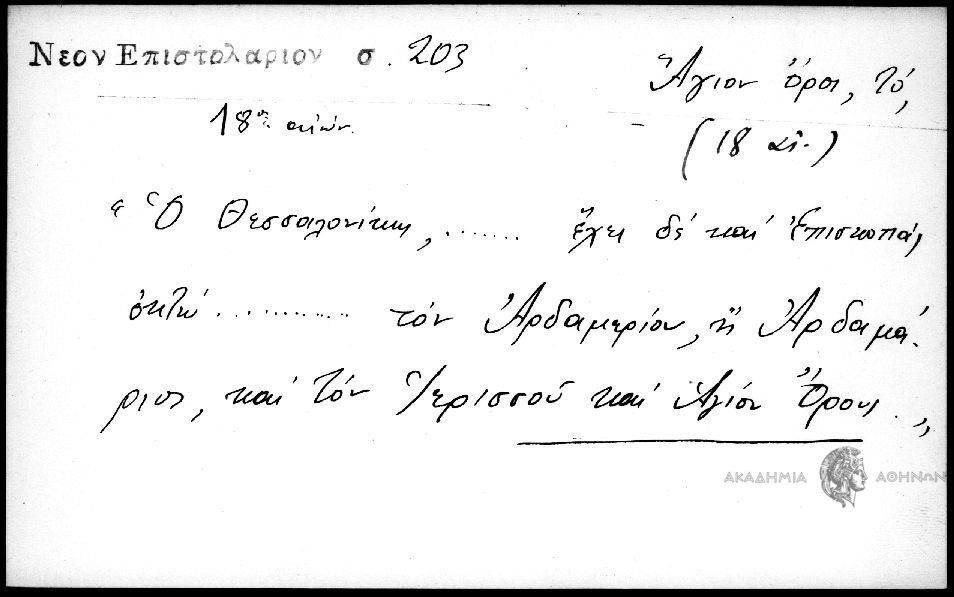 Νεον Επιστολαριον σ. 203
Ἅγιον Ὄρος, τό,
18ος αιών.
(18 αἰ.)
"Ὁ Θεσσαλονίκης, ....... ἔχει δέ καί Ἐπισκοπάς
ὀκτώ ............ τόν Ἀρδαμερίου, ἤ Ἀρδαμά-
ριος, καί τόν Ἱερισσοῦ καί Ἁγίου Ὄρους.."
ΑΚΑΔΗΜΙΑ ΑΘΗΝΩΝ